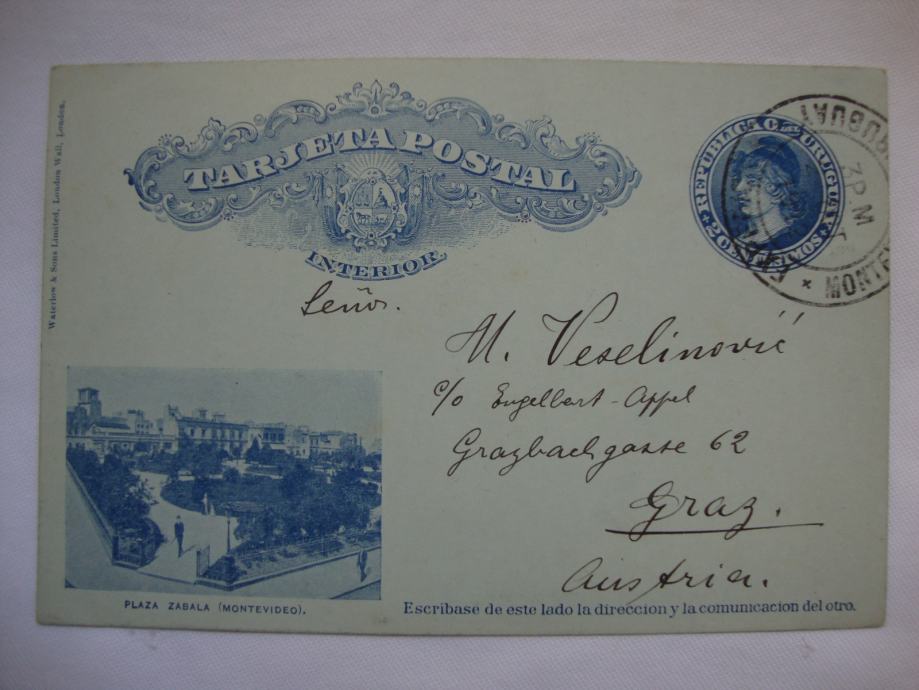 Waterlow & Sons Limited, London Wall, London.
TARJETA POSTAL
INTERIOR
REPUBLICA O. DEL URUGUAY
2 CENTESIMOS
URUGUAY
3 PM
MONTE
Señor.
M. Veselinović
c/o Engelbert-Appel
Grazbachgasse 62
Graz.
Austria.
PLAZA ZABALA (MONTEVIDEO).
Escribase de este lado la direccion y la comunicacion del otro.